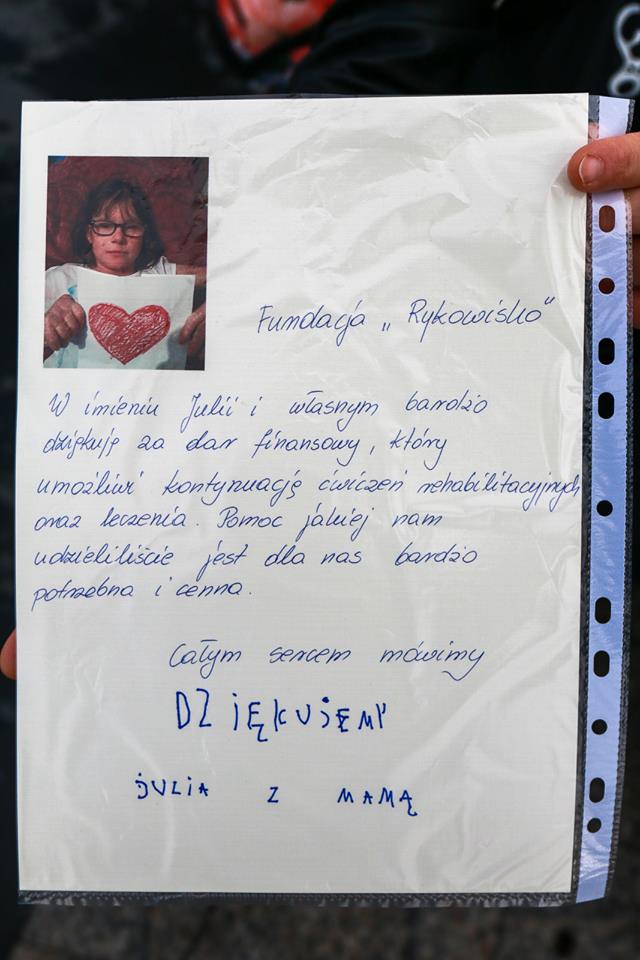 Fundacja „Rykowisko”
W imieniu Julii i własnym bardzo
dziękuję za dar finansowy, który
umożliwi kontynuację ćwiczeń rehabilitacyjnych
oraz leczenia. Pomoc jakiej nam
udzieliliście jest dla nas bardzo
potrzebna i cenna.
Całym sercem mówimy
DZiĘKUjĘMY
jULiA Z MAMĄ